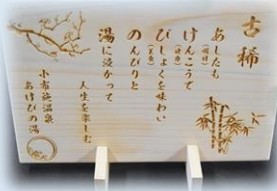 古稀
あしたも
(明日)
けんこうで
(健康)
びしょくを味わい
(美食)
のんびりと
湯に浸かって
人生を楽しむ
小布施温泉
あけびの湯